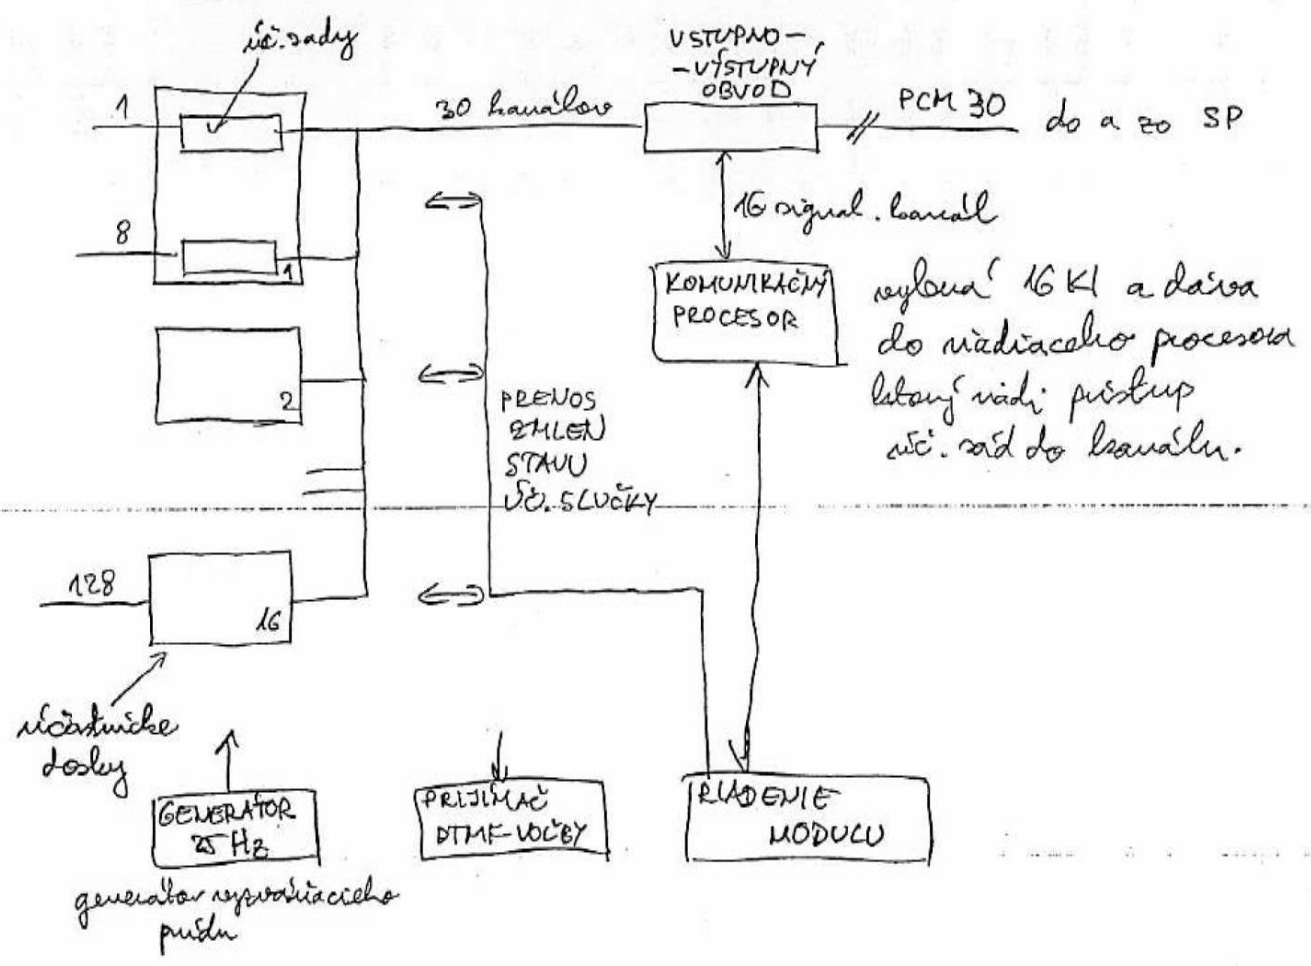 úč. sady
VSTUPNO-
-VÝSTUPNÝ
OBVOD
1
30 kanálov
PCM 30
do a zo SP
8
1
16 signal. kanál
KOMUNIKAČNÝ
PROCESOR
vyberá 16 KI a dáva
do riadiaceho procesora
ktorý riadi prístup
úč. sád do kanálu.
2
PRENOS
ZMIEN
STAVU
ÚČ. SLUČKY
128
16
účastnícke
dosky
GENERÁTOR
25 Hz
PRIJÍMAČ
DTMF-VOĽBY
RIADENIE
MODULU
generátor vyzváňacieho
prúdu